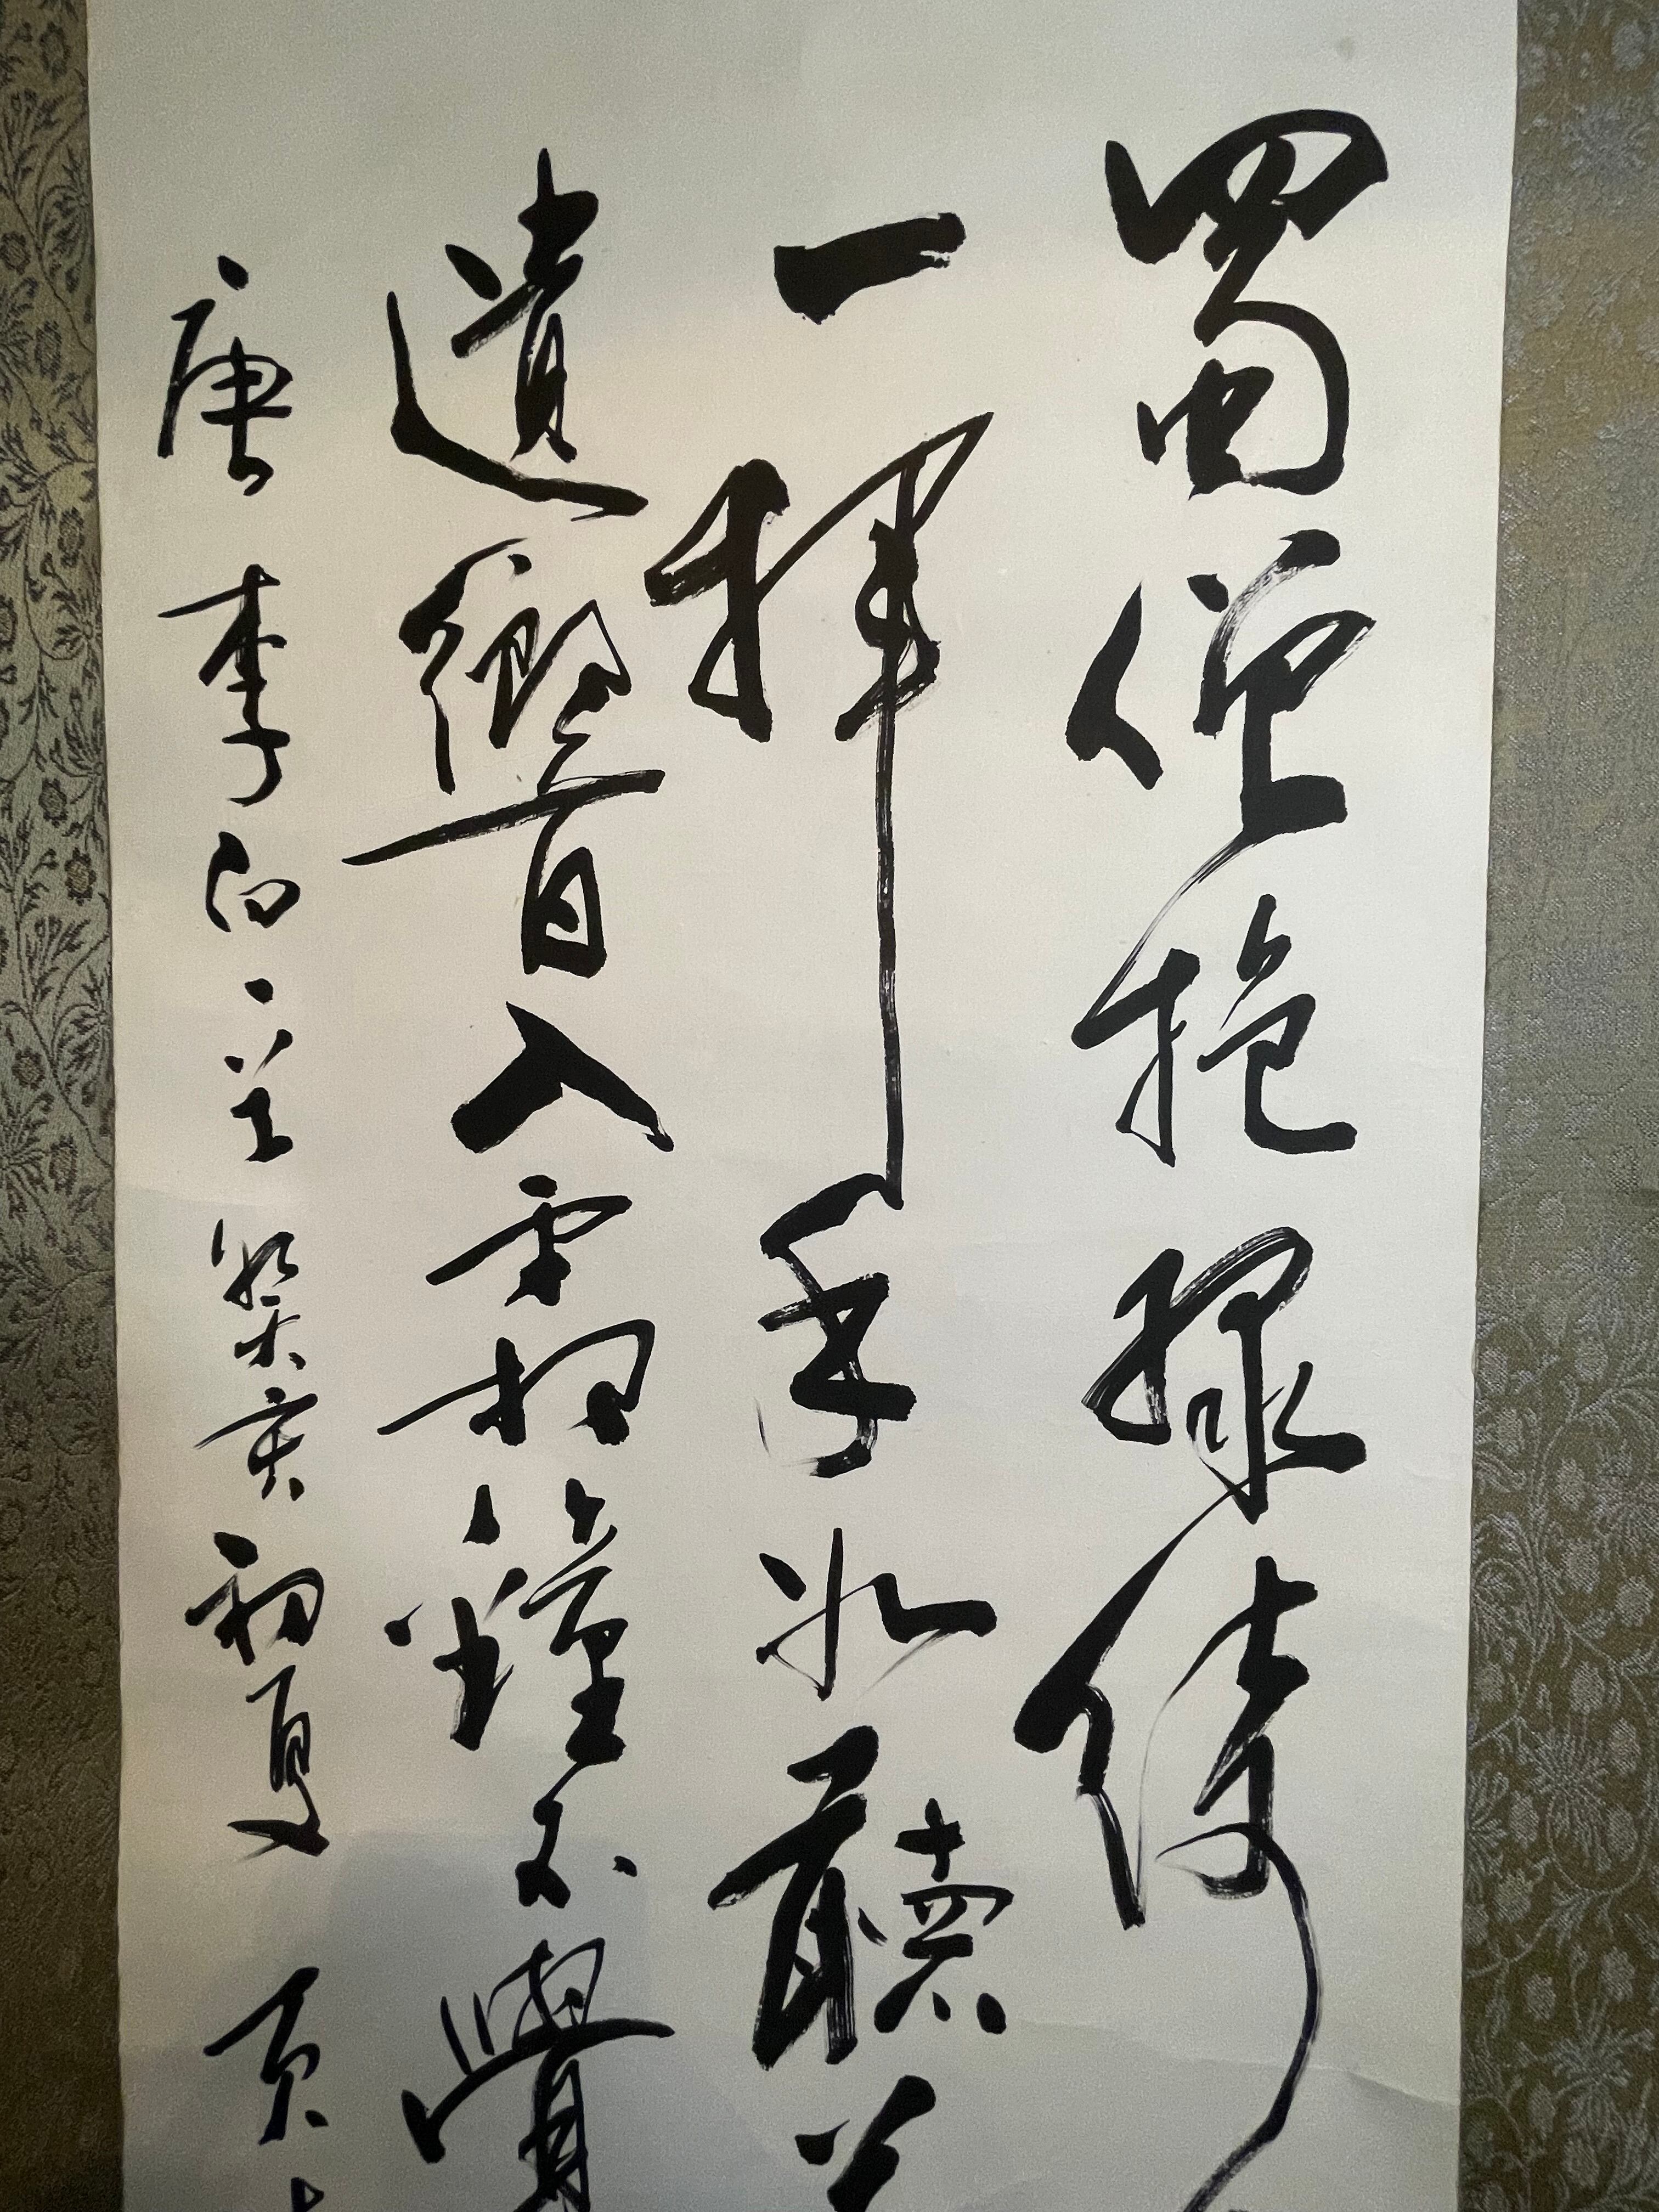 蜀僧抱綠綺
一揮手如聽
遺響入霜鐘不覺
唐李白一首癸亥初夏